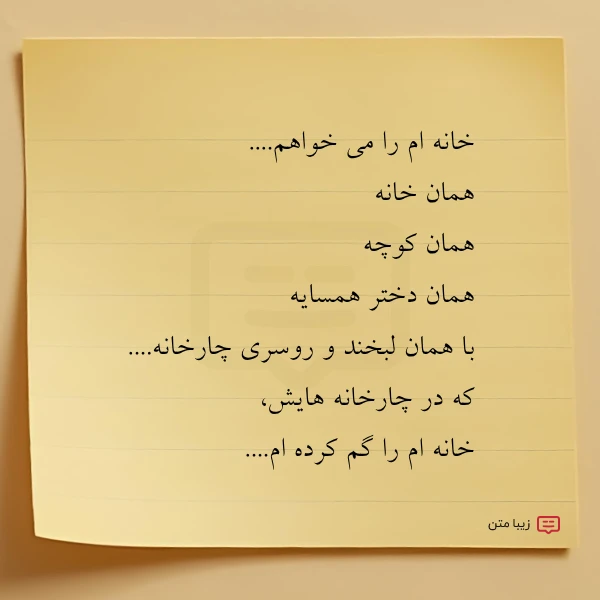 خانه ام را می خواهم....
همان خانه
همان کوچه
همان دختر همسایه
با همان لبخند و روسری چارخانه....
که در چارخانه هایش،
خانه ام را گم کرده ام....
زیبا متن